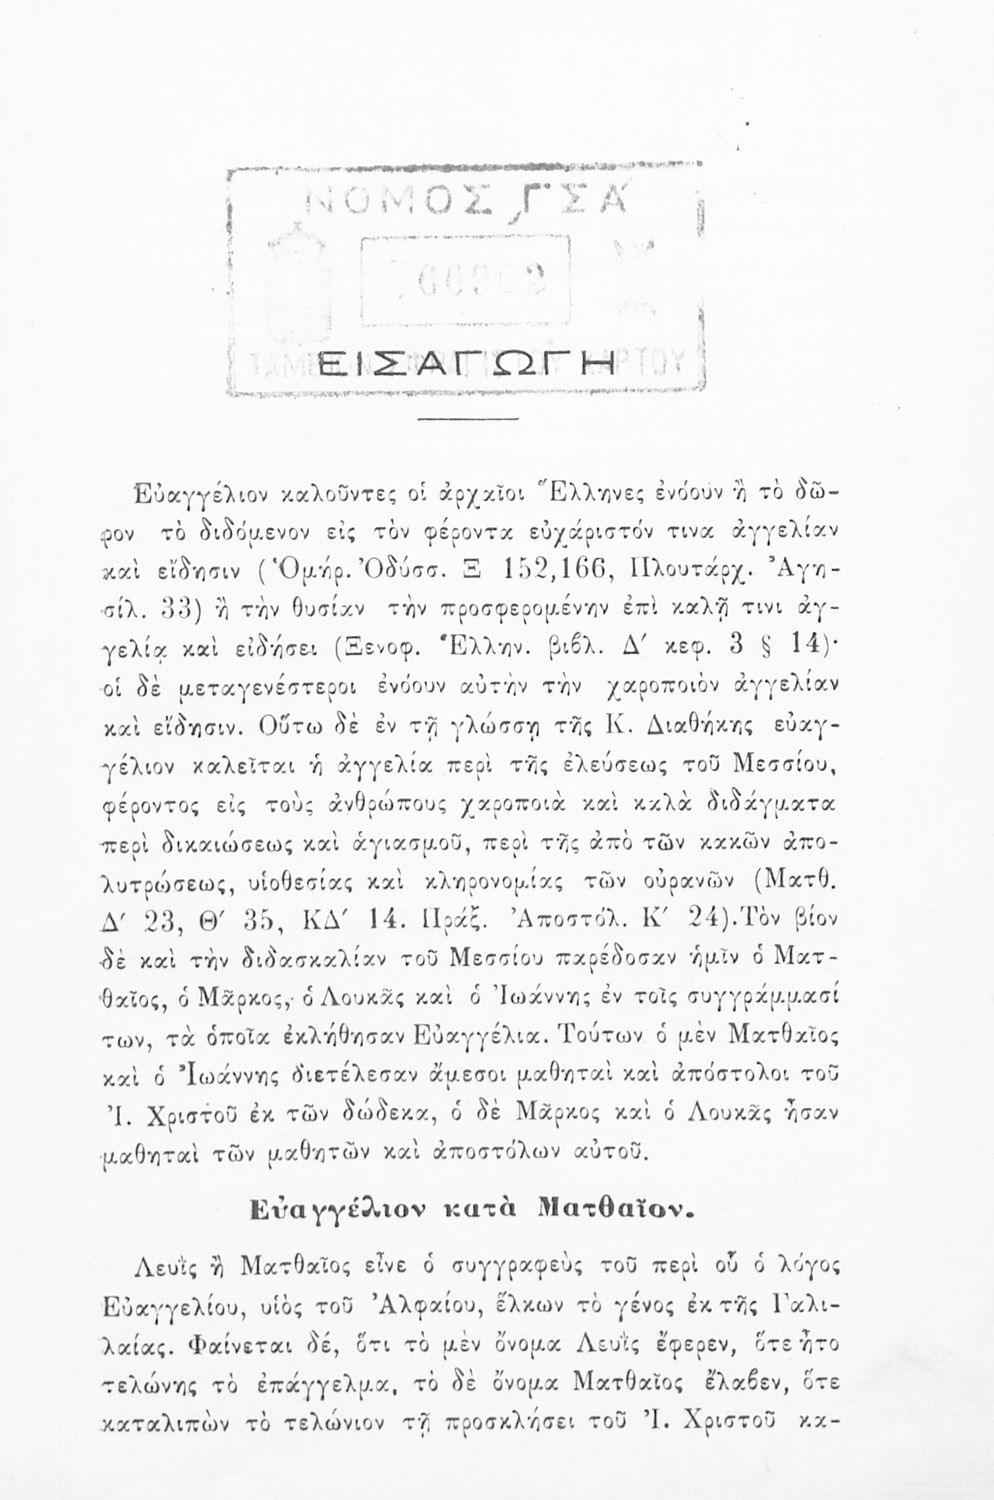 ΝΟΜΟΣ ΓΣΑ
ΕΙΣΑΓΩΓΗ
Εὐαγγέλιον καλοῦντες οἱ ἀρχαῖοι Ἕλληνες ἐνόουν ἢ τὸ δῶ-
ρον τὸ διδόμενον εἰς τὸν φέροντα εὐχάριστόν τινα ἀγγελίαν
καὶ εἴδησιν (Ὁμήρ. Ὀδύσσ. Ξ 152,166, Πλουτάρχ. Ἀγη-
σίλ. 33) ἢ τὴν θυσίαν τὴν προσφερομένην ἐπὶ καλῇ τινι ἀγ-
γελίᾳ καὶ εἰδήσει (Ξενοφ. Ἑλλην. βιβλ. Δ′ κεφ. 3 § 14)·
οἱ δὲ μεταγενέστεροι ἐνόουν αὐτὴν τὴν χαροποιὸν ἀγγελίαν
καὶ εἴδησιν. Οὕτω δὲ ἐν τῇ γλώσσῃ τῆς Κ. Διαθήκης εὐαγ-
γέλιον καλεῖται ἡ ἀγγελία περὶ τῆς ἐλεύσεως τοῦ Μεσσίου,
φέροντος εἰς τοὺς ἀνθρώπους χαροποιὰ καὶ καλὰ διδάγματα
περὶ δικαιώσεως καὶ ἁγιασμοῦ, περὶ τῆς ἀπὸ τῶν κακῶν ἀπο-
λυτρώσεως, υἱοθεσίας καὶ κληρονομίας τῶν οὐρανῶν (Ματθ.
Δ′ 23, Θ′ 35, ΚΔ′ 14. Πράξ. Ἀποστόλ. Κ′ 24). Τὸν βίον
δὲ καὶ τὴν διδασκαλίαν τοῦ Μεσσίου παρέδοσαν ἡμῖν ὁ Ματ-
θαῖος, ὁ Μᾶρκος, ὁ Λουκᾶς καὶ ὁ Ἰωάννης ἐν τοῖς συγγράμμασί
των, τὰ ὁποῖα ἐκλήθησαν Εὐαγγέλια. Τούτων ὁ μὲν Ματθαῖος
καὶ ὁ Ἰωάννης διετέλεσαν ἄμεσοι μαθηταὶ καὶ ἀπόστολοι τοῦ
Ἰ. Χριστοῦ ἐκ τῶν δώδεκα, ὁ δὲ Μᾶρκος καὶ ὁ Λουκᾶς ἦσαν
μαθηταὶ τῶν μαθητῶν καὶ ἀποστόλων αὐτοῦ.
Εὐαγγέλιον κατὰ Ματθαῖον.
Λευῒς ἢ Ματθαῖος εἶνε ὁ συγγραφεὺς τοῦ περὶ οὗ ὁ λόγος
Εὐαγγελίου, υἱὸς τοῦ Ἀλφαίου, ἕλκων τὸ γένος ἐκ τῆς Γαλι-
λαίας. Φαίνεται δέ, ὅτι τὸ μὲν ὄνομα Λευῒς ἔφερεν, ὅτε ἦτο
τελώνης τὸ ἐπάγγελμα, τὸ δὲ ὄνομα Ματθαῖος ἔλαβεν, ὅτε
καταλιπὼν τὸ τελώνιον τῇ προσκλήσει τοῦ Ἰ. Χριστοῦ κα-